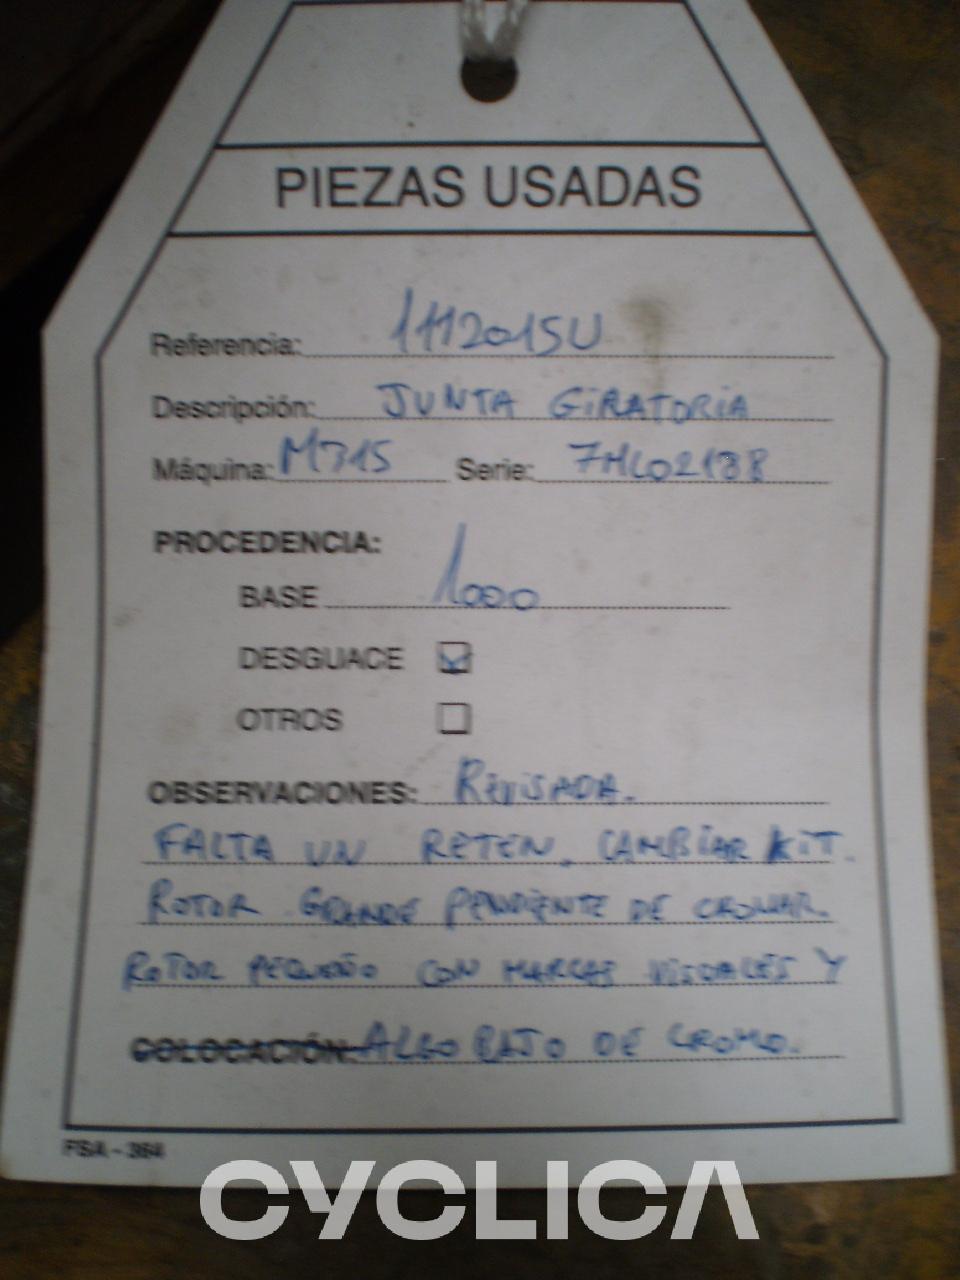 PIEZAS USADAS
Referencia: 1112015U
Descripción: JUNTA GIRATORIA
Máquina: M315 Serie: 7ML02138
PROCEDENCIA:
BASE 1000
DESGUACE
OTROS
OBSERVACIONES: REVISADA.
FALTA UN RETEN. CAMBIAR KIT.
ROTOR GRANDE PENDIENTE DE CROMAR.
ROTOR PEQUEÑO CON MARCAS VISUALES Y
COLOCACIÓN: ALGO BAJO DE CROMO.
FSA - 364
CYCLICA